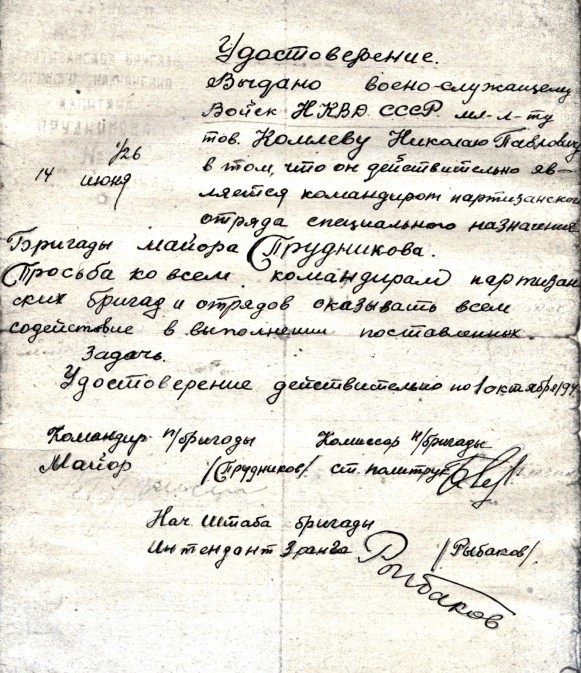 Удостоверение.
Выдано воено-служащему
Войск НКВД СССР. мл-л-ту
тов. Комлеву Николаю Павловичу
1/26
14 июня
в том, что он действительно яв-
ляется командиром партизанского
отряда специального назначения
Бригады майора Прудникова.
Просьба ко всем командирам партизан
ских бригад и отрядов оказывать всем
содействие в выполнении поставленных
Задачь.
Удостоверение действительно по 1 октября 194
Командир п/бригады Комиссар п/бригады
Майор /Прудников/. ст. политрук
Нач. Штаба бригады
Интендант 3 ранга Рыбаков /Рыбаков/.